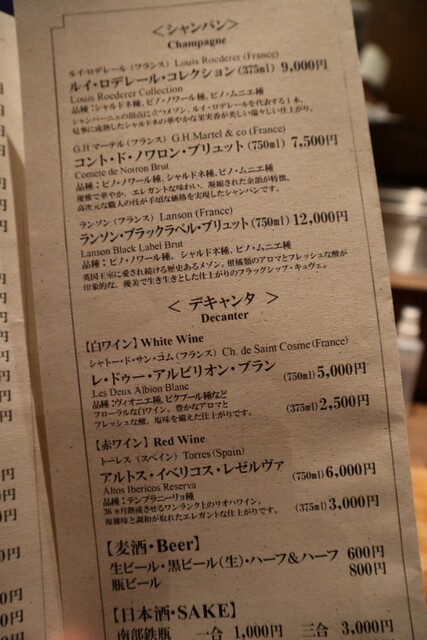 ＜シャンパン＞
Champagne
ルイ・ロデレール（フランス）Louis Roederer (France)
ルイ・ロデレール・コレクション（375ml）9,000円
Louis Roederer Collection
品種：シャルドネ種、ピノ・ノワール種、ピノ・ムニエ種
シャンパーニュの頂点に立つメゾン、ルイ・ロデレールを代表する1本。
見事に成熟したシャルドネの華やかな果実香が美しい瑞々しい仕上がり。
G.Hマーテル（フランス）G.H.Martel & co (France)
コント・ド・ノワロン・ブリュット（750ml）7,500円
Comete de Noiron Brut
品種：ピノ・ノワール種、シャルドネ種、ピノ・ムニエ種
優雅で華やか、エレガントな味わい、凝縮された余韻が特徴。
高次元な職人の技が手頃な価格を実現したシャンパンです。
ランソン（フランス）Lanson (France)
ランソン・ブラックラベル・ブリュット（750ml）12,000円
Lanson Black Label Brut
品種：ピノ・ノワール種、シャルドネ種、ピノ・ムニエ種
英国王室に愛され続ける歴史あるメゾン。柑橘類のアロマとフレッシュな酸が
印象的な、優美で生き生きとした仕上がりのフラッグシップ・キュヴェ。
＜デキャンタ＞
Decanter
【白ワイン】White Wine
シャトー・ド・サン・コム（フランス）Ch. de Saint Cosme (France)
レ・ドゥー・アルビリオン・ブラン（750ml）5,000円
Les Deux Albion Blanc
品種：ヴィオニエ種、ピクプール種など
フローラルな白ワイン。豊かなアロマと
フレッシュな酸、塩味を備えた仕上がりです。（375ml）2,500円
【赤ワイン】Red Wine
トーレス（スペイン）Torres (Spain)
アルトス・イベリコス・レゼルヴァ（750ml）6,000円
Altos Ibericos Reserva
品種：テンプラニーリョ種
36ヶ月熟成させるワンランク上のリオハワイン。
複雑味と調和が取れたエレガントな仕上がりです。（375ml）3,000円
【麦酒・Beer】
生ビール・黒ビール（生）・ハーフ&ハーフ 600円
瓶ビール 800円
【日本酒・SAKE】
南部鉄瓶 一合 1,000円 三合 3,000円
円
円
円
円
円
円
円
円
円
円
円
円
円